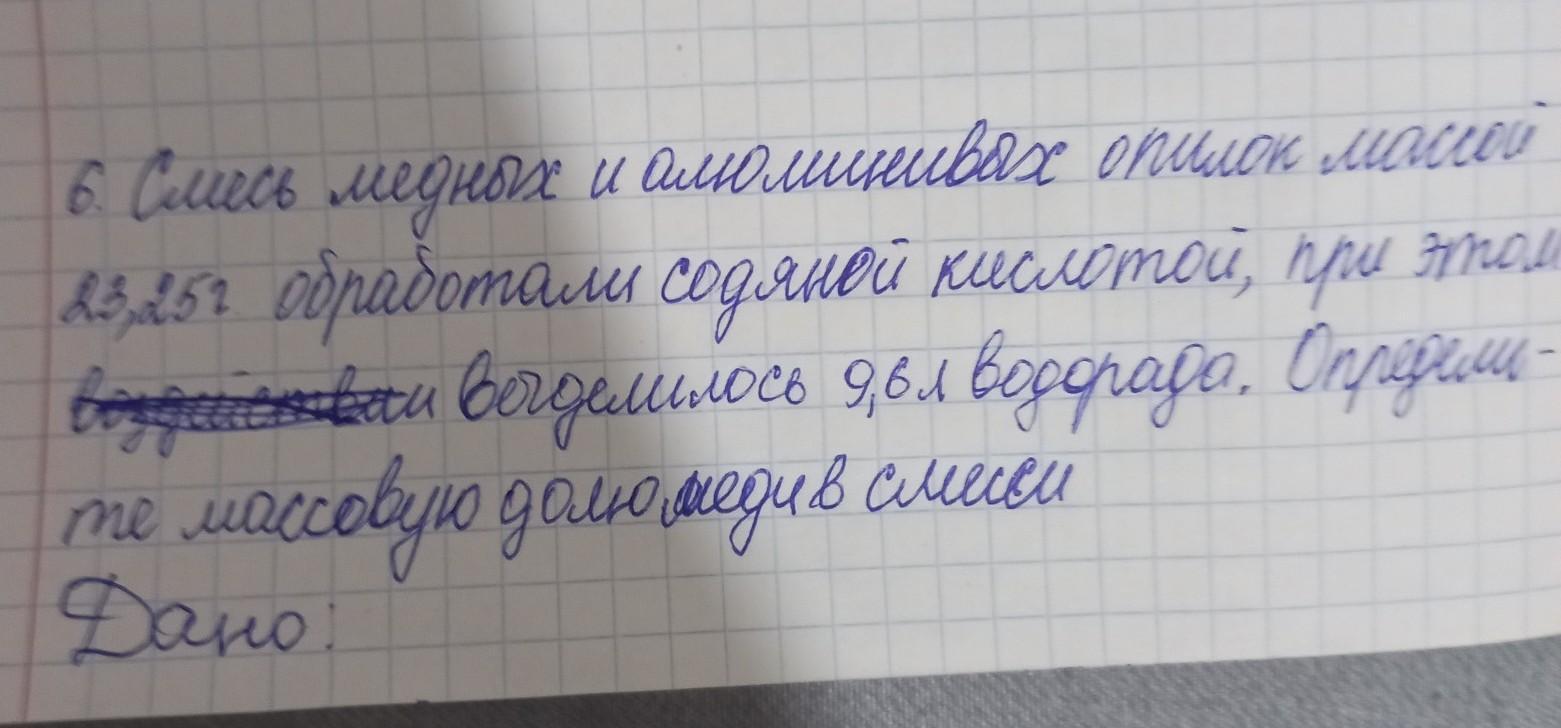 6. Смесь медных и алюминивых опилок массой
23,25г обработали содяной кислотой, при этом
выделилось 9,6л водорада. Определи-
те массовую долю меди в смеси
Дано: